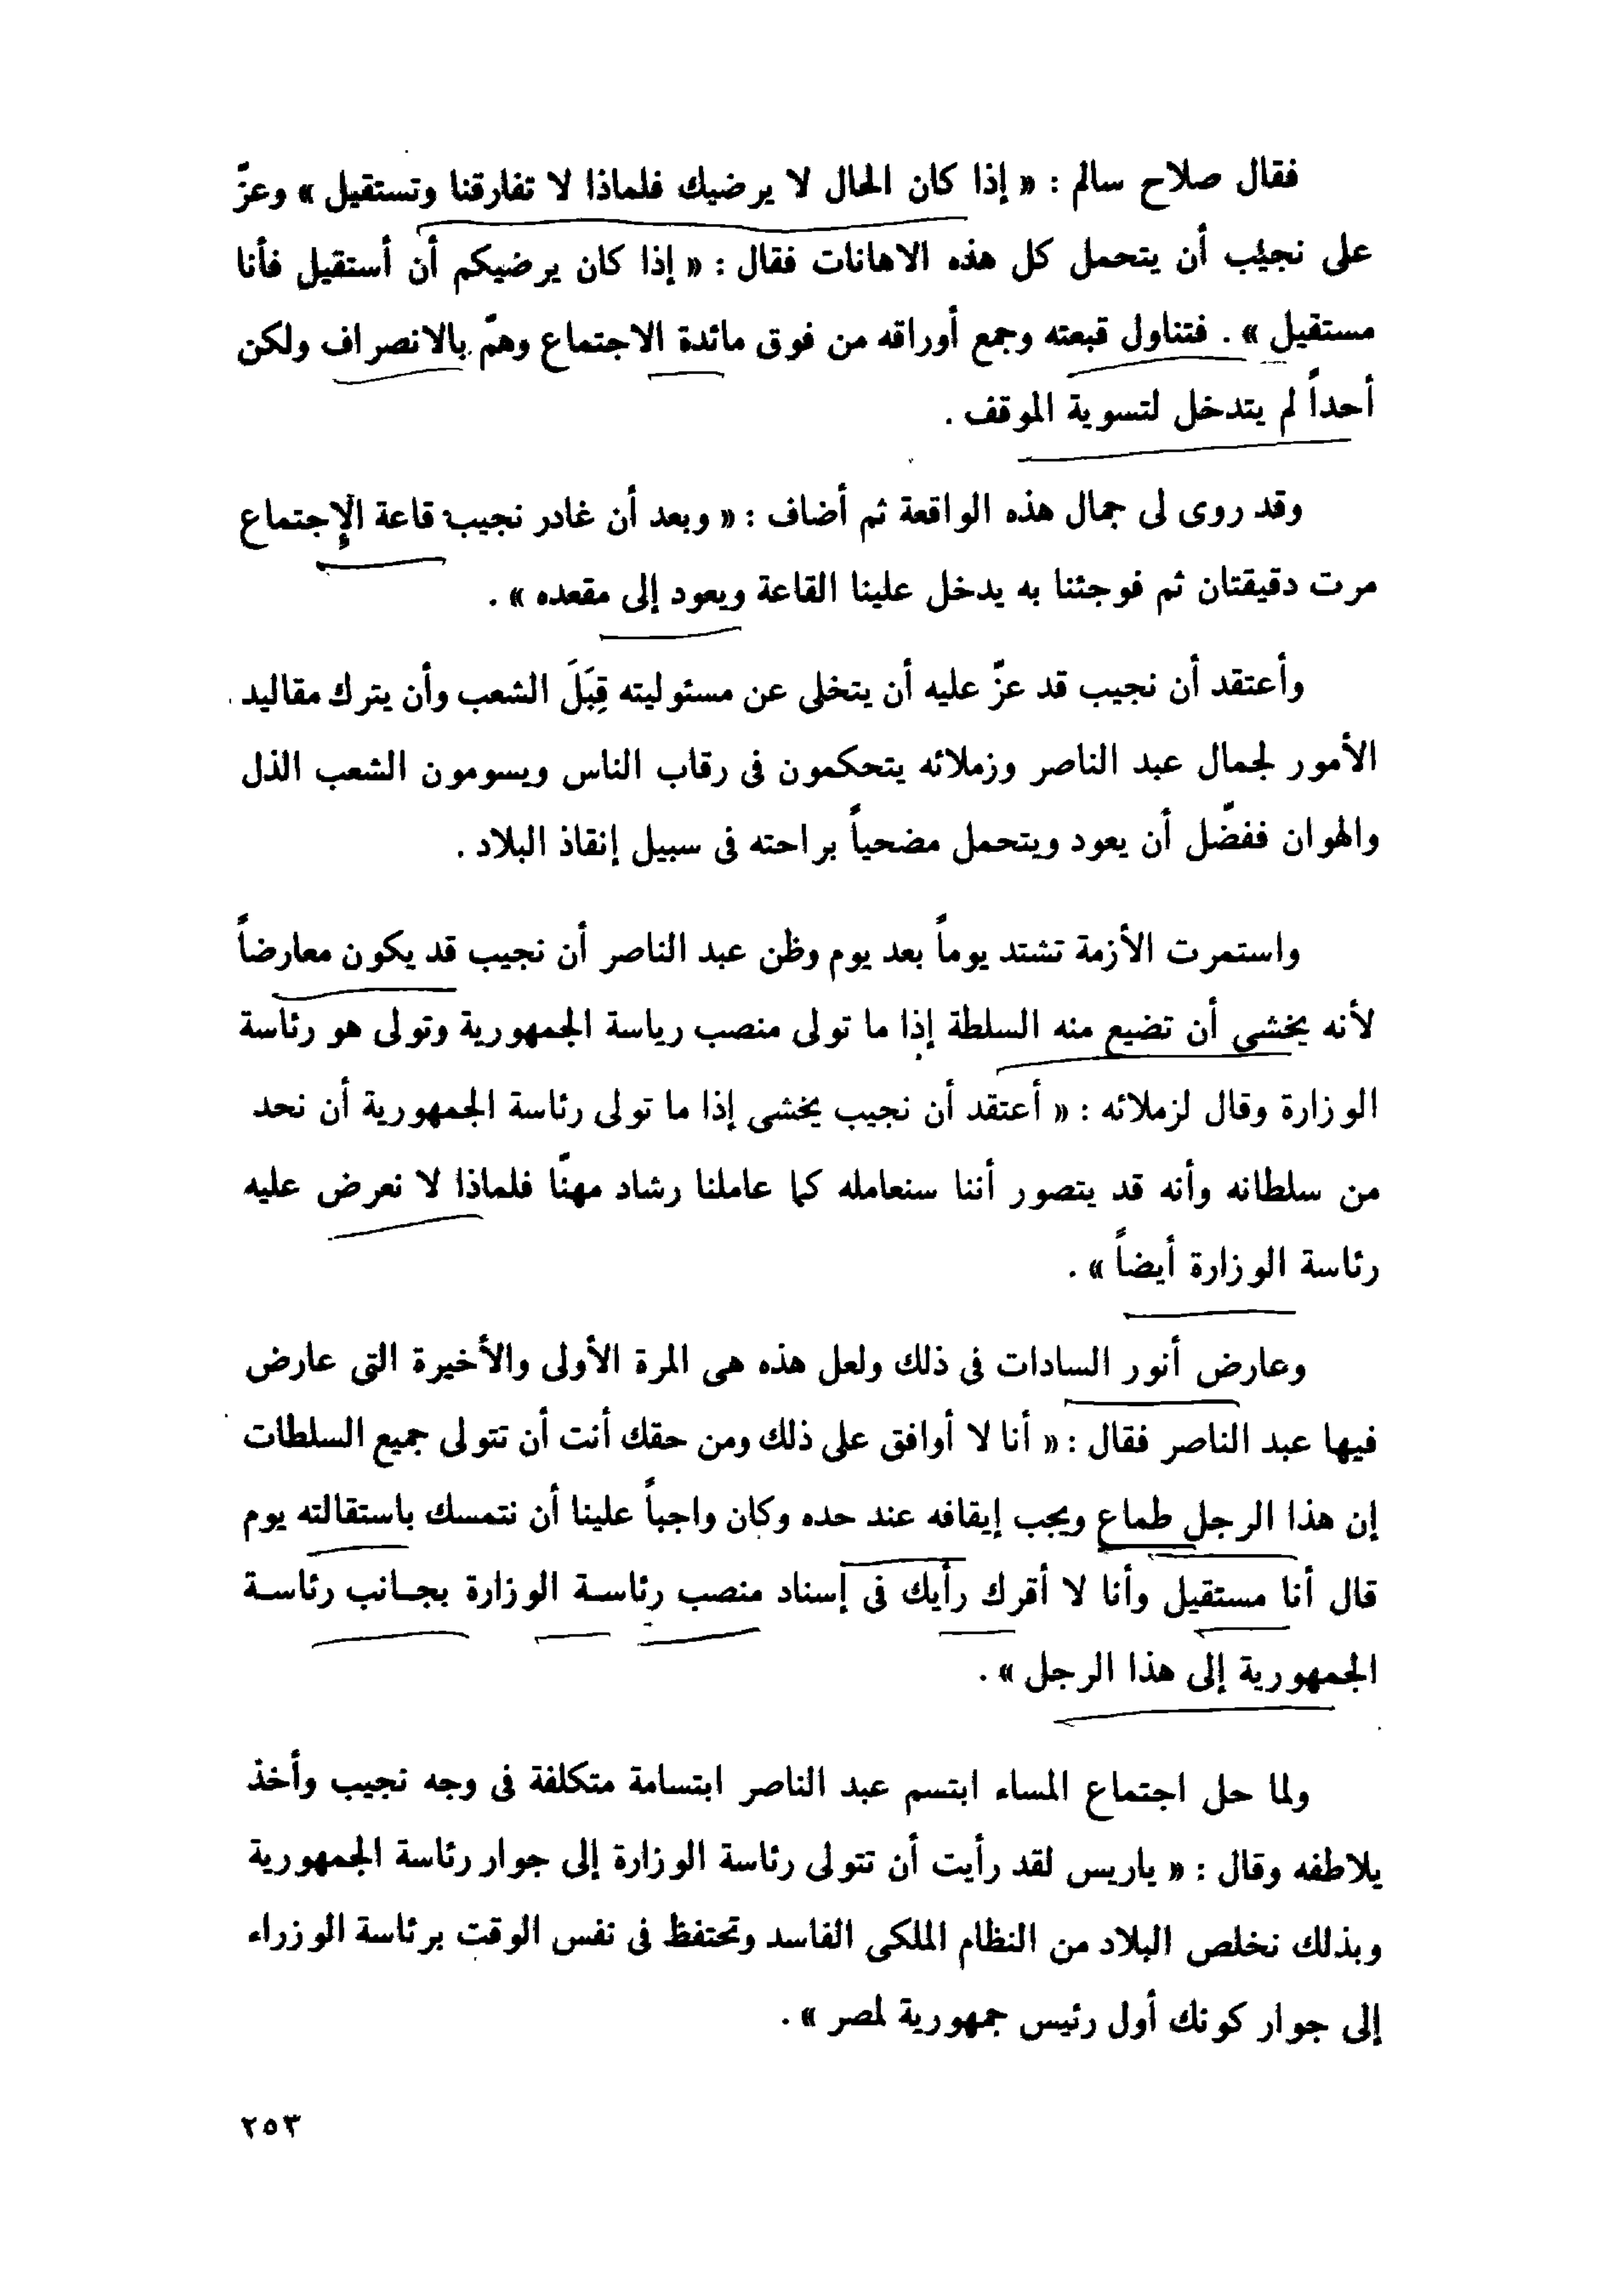 فقال صلاح سالم : « إذا كان الحال لا يرضيك فلماذا لا تفارقنا وتستقيل » وعزّ
على نجيب أن يتحمل كل هذه الاهانات فقال : « إذا كان يرضيكم أن أستقيل فأنا
مستقيل » . فتناول قبعته وجمع أوراقه من فوق مائدة الاجتماع وهمّ بالانصراف ولكن
أحداً لم يتدخل لتسوية الموقف .
وقد روى لى جمال هذه الواقعة ثم أضاف : « وبعد أن غادر نجيب قاعة الإجتماع
مرت دقيقتان ثم فوجئنا به يدخل علينا القاعة ويعود إلى مقعده » .
وأعتقد أن نجيب قد عزّ عليه أن يتخلى عن مسئوليته قِبَلَ الشعب وأن يترك مقاليد
الأمور لجمال عبد الناصر وزملائه يتحكمون فى رقاب الناس ويسومون الشعب الذل
والهوان ففضّل أن يعود ويتحمل مضحياً براحته فى سبيل إنقاذ البلاد .
واستمرت الأزمة تشتد يوماً بعد يوم وظن عبد الناصر أن نجيب قد يكون معارضاً
لأنه يخشى أن تضيع منه السلطة إذا ما تولى منصب رياسة الجمهورية وتولى هو رئاسة
الوزارة وقال لزملائه : « أعتقد أن نجيب يخشى إذا ما تولى رئاسة الجمهورية أن نحد
من سلطانه وأنه قد يتصور أننا سنعامله كما عاملنا رشاد مهنّا فلماذا لا نعرض عليه
رئاسة الوزارة أيضاً » .
وعارض أنور السادات فى ذلك ولعل هذه هى المرة الأولى والأخيرة التى عارض
فيها عبد الناصر فقال : « أنا لا أوافق على ذلك ومن حقك أنت أن تتولى جميع السلطات
إن هذا الرجل طماع ويجب إيقافه عند حده وكان واجباً علينا أن نتمسك باستقالته يوم
قال أنا مستقيل وأنا لا أقرك رأيك فى إسناد منصب رئاسة الوزارة بجانب رئاسة
الجمهورية إلى هذا الرجل » .
ولما حل اجتماع المساء ابتسم عبد الناصر ابتسامة متكلفة فى وجه نجيب وأخذ
يلاطفه وقال : « ياريس لقد رأيت أن تتولى رئاسة الوزارة إلى جوار رئاسة الجمهورية
وبذلك نخلص البلاد من النظام الملكى الفاسد وتحتفظ فى نفس الوقت برئاسة الوزراء
إلى جوار كونك أول رئيس جمهورية لمصر » .
٢٥٣